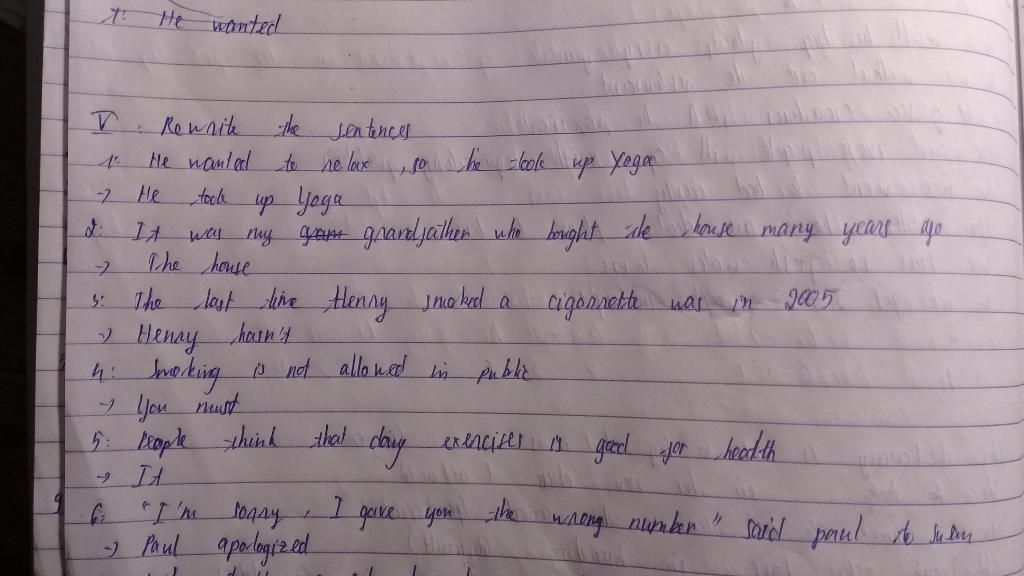 1: He wanted
V. Rewrite the sentences
1: He wanted to relax, so he took up Yoga
→ He took up Yoga
2: It was my grandfather who bought the house many years ago
→ The house
3: The last time Henry smoked a cigarrette was in 2005
→ Henry hasn't
4: Smoking is not allowed in public
→ You must
5: People think that doing exercises is good for health
→ It
6: "I'm sorry, I gave you the wrong number" said paul to Susan
→ Paul apologized